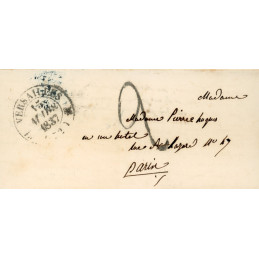 VERSAILLES
1837
2
Madame
Madame Pierre
en son hotel
rue St Lazare no 67
Paris